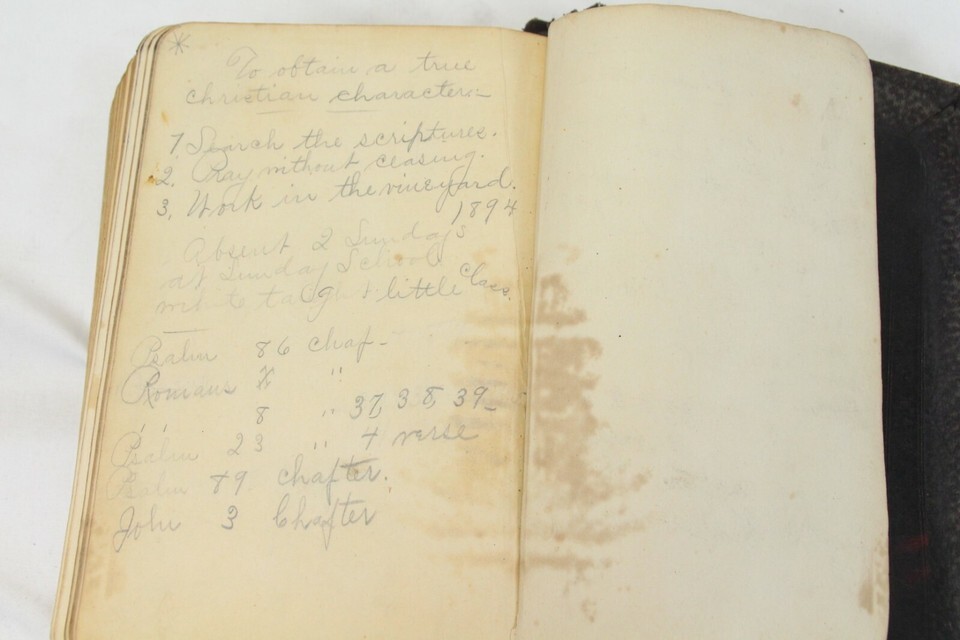 To obtain a true
christian character:-
1. Search the scriptures.
2. Pray without ceasing.
3, Work in the vineyard.
1894
Absent 2 Sundays
at Sunday School
little Class.
Psalm 86 chap-
Romans X "
" " 8 " 37, 38, 39-
Psalm 23 " 4 verse
Psalm 49 chapter.
John 3 Chapter